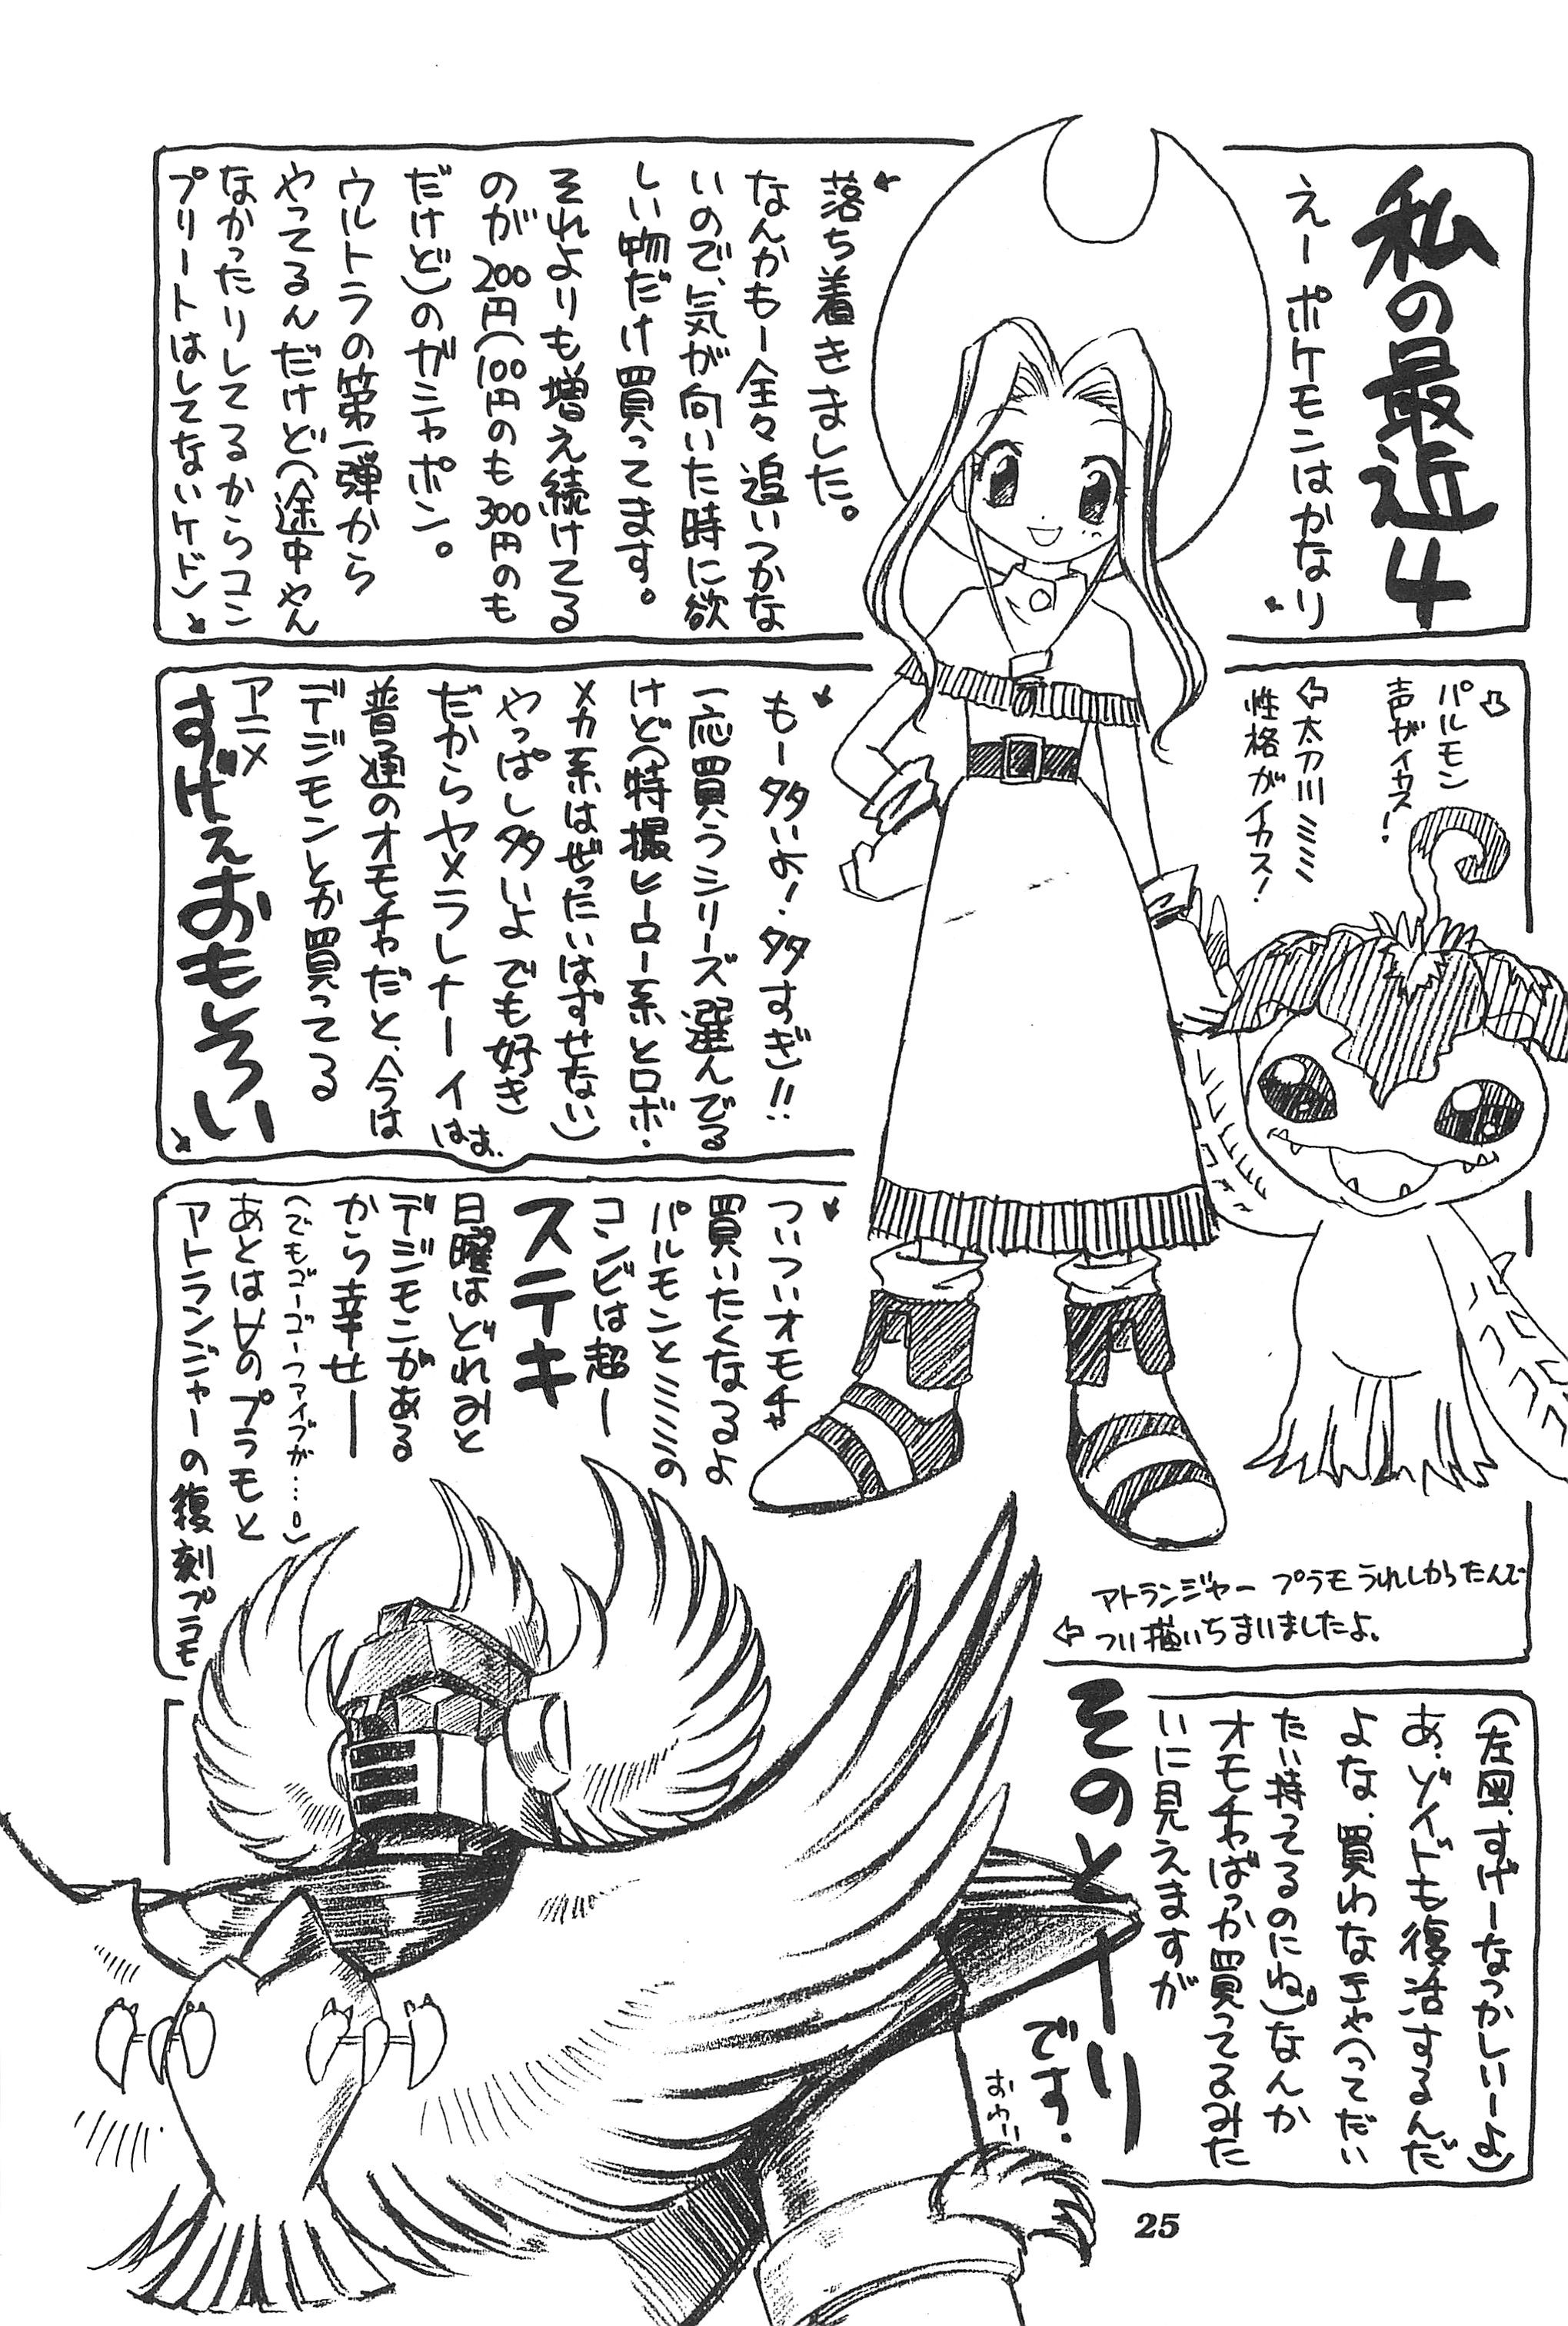 私の最近4
えーポケモンはかなり
落ち着きました。
なんかもー全々追いつかな
いので、気が向いた時に欲
しい物だけ買ってます。
それよりも増え続けてる
のが200円(100円のも300円のも
だけど)のガシャポン。
ウルトラの第一弾から
やってるんだけど(途中やん
なかったりしてるからコン
プリートはしてないケド)
パルモン
声がイカス!
太刀川ミミ
性格がイカス!
もー多いよ!多すぎ!!
一応買うシリーズ選んでる
けど(特撮ヒーロー系とロボ・
メカ系はぜったいはずせない)
やっぱし多いよでも好き
だからヤメラレナーイ
はぁ
普通のオモチャだと、今は
デジモンとか買ってる
アニメ
すげえおもしろい
ついついオモチャ
買いたくなるよ
パルモンとミミの
コンビは超ー
ステキ
日曜はどれみと
デジモンがある
から幸せー
(でもゴーゴーファイブが…。)
あとは女のプラモと
アトランジャーの復刻プラモ
アトランジャー プラモうれしかったんで
つい描いちまいましたよ。
(左図、すげーなつかしいーよ)
あ、ゾイドも復活するんだ
よな、買わなきゃ(ってだい
たい持ってるのにね)なんか
オモチャばっか買ってるみた
いに見えますが
そのとーり
です.
おわ!!
25